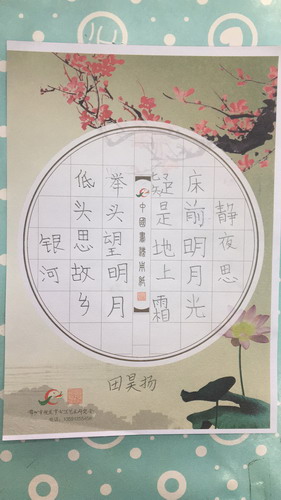 静夜思
床前明月光
疑是地上霜
中國書
举头望明月
低头思故乡
银河
田昊扬